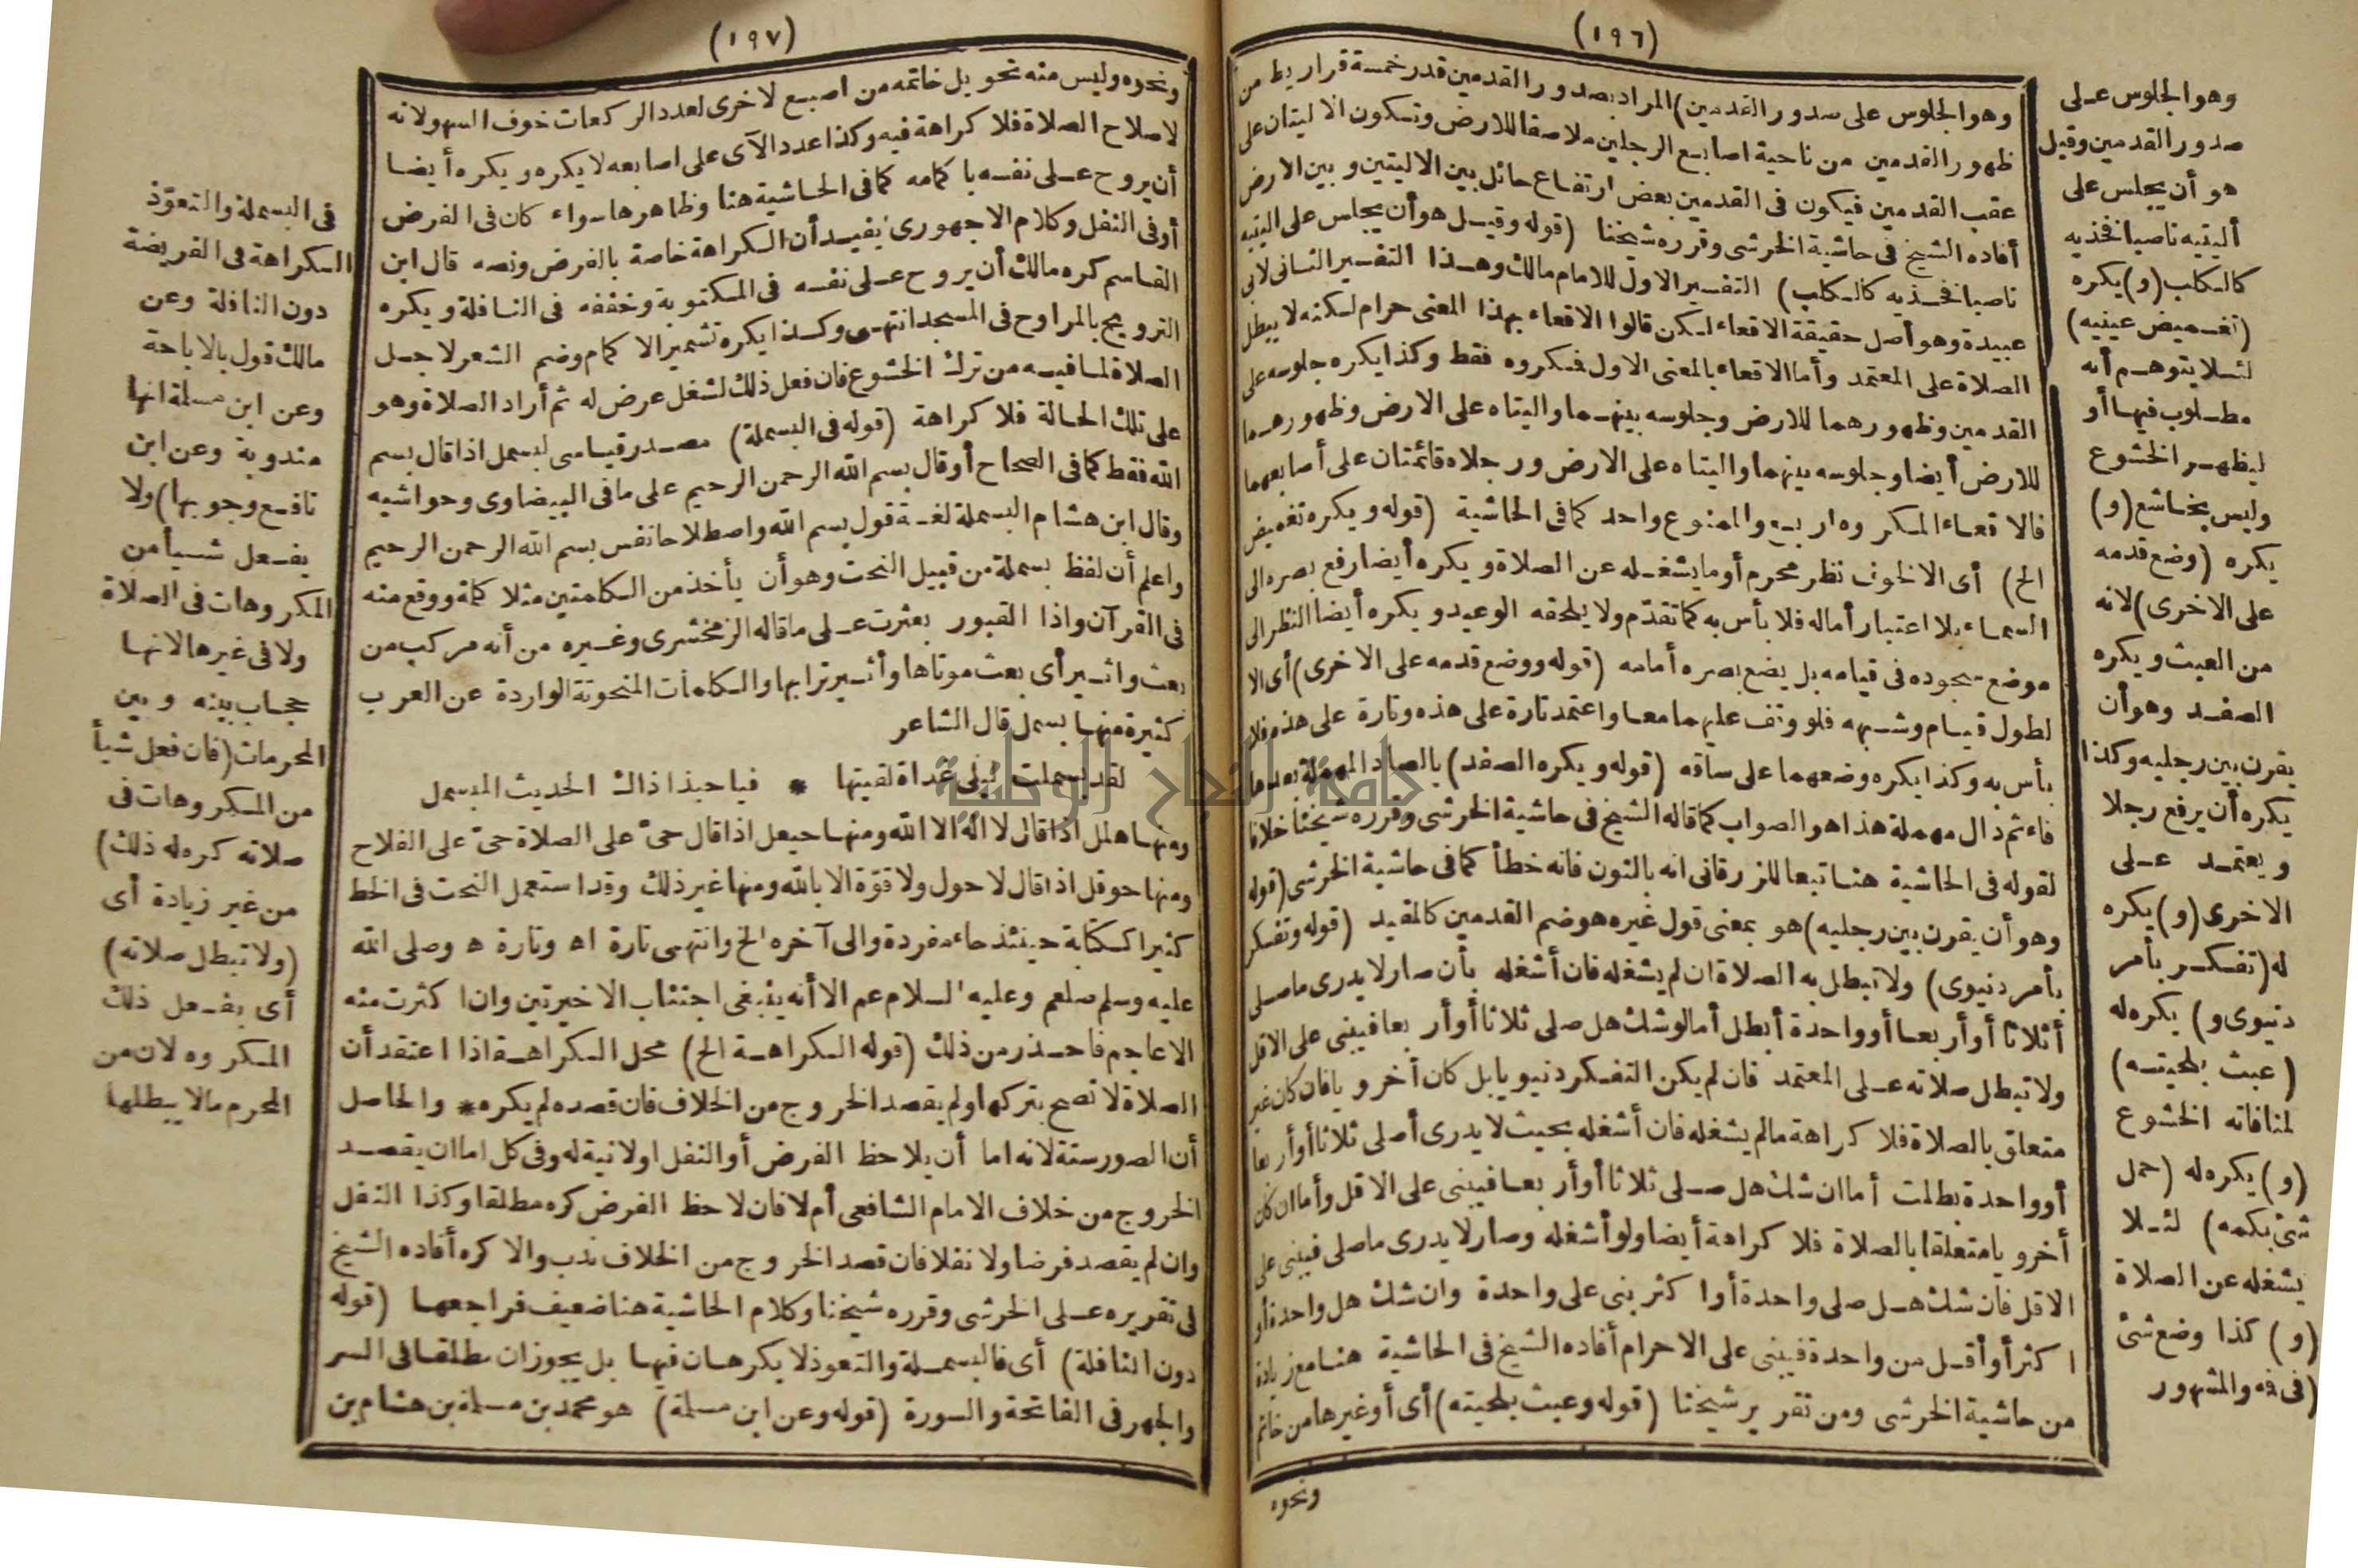 (١٩٦)
وهو الجلوس على
صدور القدمين وقيل
هو أن يجلس على
أليتيه ناصبا فخذيه
كالكلب (و) يكره
(تغميض عينيه)
لئلا يتوهم أنه
مطلوب فيها أو
ليظهر الخشوع
وليس بخاشع (و)
يكره (وضع قدمه
على الاخرى) لانه
من العبث ويكره
الصفد وهو أن
يقرن بين رجليه وكذا
يكره أن يرفع رجلا
ويعتمد على
الاخرى (و) يكره
له (تفكر بأمر
دنيوى و) يكره له
(عبث بلحيته)
لمنافاته الخشوع
(و) يكره له (حمل
شئ بكمه) لئلا
يشغله عن الصلاة
(و) كذا وضع شئ
(فى فه والمشهور
وهو الجلوس على صدور القدمين) المراد بصدور القدمين قدر خمسة قراريط من
ظهور القدمين من ناحية اصابع الرجلين ملاصقا للارض وتكون الاليتان على
عقب القدمين فيكون فى القدمين بعض ارتفاع حائل بين الاليتين وبين الارض
أفاده الشيخ فى حاشية الخرشى وقرره شيخنا (قوله وقيل هو أن يجلس على اليتيه
ناصبا فخذيه كالكلب) التفسير الاول للامام مالك وهذا التفسير الثانى لابى
عبيدة وهو أصل حقيقة الاقعاء لكن قالوا الاقعاء بهذا المعنى حرام لكنه لا يبطل
الصلاة على المعتمد وأما الاقعاء بالمعنى الاول فمكروه فقط وكذا يكره جلوسه على
القدمين وظهورهما للارض وجلوسه بينهما واليتاه على الارض وظهورهما
للارض أيضا وجلوسه بينهما واليتاه على الارض ورجلاه قائمتان على أصابعهما
فالاقعاء المكروه اربع والممنوع واحد كما فى الحاشية (قوله ويكره تغميض
الخ) أى الا لخوف نظر محرم أو ما يشغله عن الصلاة ويكره أيضا رفع بصره الى
السماء بلا اعتبار أما له فلا بأس به كما تقدّم ولا يلحقه الوعيد ويكره أيضا النظر الى
موضع سجوده فى قيامه بل يضع بصره أمامه (قوله ووضع قدمه على الاخرى) أى الا
لطول قيام وشبهه فلو وقف عليهما معا واعتمد تارة على هذه وتارة على هذه فلا
بأس به وكذا يكره وضعهما على ساقه (قوله ويكره الصفد) بالصاد المهملة بعدها
فاء ثم دال مهملة هذا هو الصواب كما قاله الشيخ فى حاشية الخرشى وقرره شيخنا خلافا
لقوله فى الحاشية هنا تبعا للزرقانى انه بالنون فانه خطأ كما فى حاشية الخرشى (قوله
وهو أن يقرن بين رجليه) هو بمعنى قول غيره هو ضم القدمين كالمقيد (قوله وتفكر
بأمر دنيوى) ولا تبطل به الصلاة ان لم يشغله فان أشغله بأن صار لا يدرى ما صلى
أثلاثا أو أربعا أو واحدة أبطل أما لو شك هل صلى ثلاثا أو أربعا فيبنى على الاقل
ولا تبطل صلاته على المعتمد فان لم يكن التفكر دنيويا بل كان أخرويا فان كان غير
متعلق بالصلاة فلا كراهة ما لم يشغله فان أشغله بحيث لا يدرى أصلى ثلاثا أو أربعا
أو واحدة بطلت أما ان شك هل صلى ثلاثا أو أربعا فيبنى على الاقل وأما ان كان
أخرويا متعلقا بالصلاة فلا كراهة أيضا ولو أشغله وصار لا يدرى ما صلى فيبنى على
الاقل فان شك هل صلى واحدة أو اكثر بنى على واحدة وان شك هل واحدة أو
اكثر أو أقل من واحدة فيبنى على الاحرام أفاده الشيخ فى الحاشية هنا مع زيادة
من حاشية الخرشى ومن تقرير شيخنا (قوله وعبث بلحيته) أى أو غيرها من خاتم
ونحوه
(١٩٧)
ونحوه وليس منه تحويل خاتمه من اصبع لاخرى لعدد الركعات خوف السهو لانه
لاصلاح الصلاة فلا كراهة فيه وكذا عدد الآى على اصابعه لا يكره ويكره أيضا
أن يروح على نفسه باكمامه كما فى الحاشية هنا وظاهرها سواء كان فى الفرض
أو فى النفل وكلام الاجهورى يفيد أن الكراهة خاصة بالفرض ونصه قال ابن
القاسم كره مالك أن يروح على نفسه فى المكتوبة وخففه فى النافلة ويكره
الترويح بالمراوح فى المسجد انتهى وكذا يكره تشمير الاكمام وضم الشعر لاجل
الصلاة لما فيه من ترك الخشوع فان فعل ذلك لشغل عرض له ثم أراد الصلاة وهو
على تلك الحالة فلا كراهة (قوله فى البسملة) مصدر قياسى لبسمل اذا قال بسم
الله فقط كما فى الصحاح أو قال بسم الله الرحمن الرحيم على ما فى البيضاوى وحواشيه
وقال ابن هشام البسملة لغة قول بسم الله واصطلاحا نفس بسم الله الرحمن الرحيم
واعلم أن لفظ بسملة من قبيل النحت وهو أن يأخذ من الكلمتين مثلا كلمة ووقع منه
فى القرآن واذا القبور بعثرت على ما قاله الزمخشرى وغيره من أنه مركب من
بعث واثير أى بعث موتاها وأثير ترابها والكلمات المنحوتة الواردة عن العرب
كثيرة منها بسمل قال الشاعر
لقد بسملت ليلى غداة لقيتها * فيا حبذا ذاك الحديث المبسمل
ومنها هلل اذا قال لا اله الا الله ومنها حيعل اذا قال حىّ على الصلاة حىّ على الفلاح
ومنها حوقل اذا قال لا حول ولا قوّة الا بالله ومنها غير ذلك وقد استعمل النحت فى الخط
كثيرا ككتابة حينئذ حاء مفردة والى آخره الخ وانتهى تارة اه وتارة ه وصلى الله
عليه وسلم صلعم وعليه السلام عم الا أنه ينبغى اجتناب الاخيرتين وان اكثرت منه
الاعاجم فاحذر من ذلك (قوله الكراهة الخ) محل الكراهة اذا اعتقد أن
الصلاة لا تصح بتركها ولم يقصد الخروج من الخلاف فان قصده لم يكره * والحاصل
أن الصور ستة لانه اما أن يلاحظ الفرض أو النفل اولا نية له وفى كل اما ان يقصد
الخروج من خلاف الامام الشافعى أم لا فان لاحظ الفرض كره مطلقا وكذا النفل
وان لم يقصد فرضا ولا نفلا فان قصد الخروج من الخلاف ندب والا كره أفاده الشيخ
فى تقريره على الخرشى وقرره شيخنا وكلام الحاشية هنا ضعيف فراجعها (قوله
دون النافلة) أى فالبسملة والتعوذ لا يكرهان فيها بل يجوزان مطلقا فى السر
والجهر فى الفاتحة والسورة (قوله وعن ابن مسلمة) هو محمد بن مسلمة بن هشام بن
فى البسملة والتعوّذ
الكراهة فى الفريضة
دون النافلة وعن
مالك قول بالاباحة
وعن ابن مسلمة انها
مندوبة وعن ابن
نافع وجوبها) ولا
يفعل شيأ من
المكروهات فى الصلاة
ولا فى غيرها لانها
حجاب بينه وبين
المحرمات (فان فعل شيأ
من المكروهات فى
صلاته كره له ذلك)
من غير زيادة أى
(ولا تبطل صلاته)
أى بفعل ذلك
المكروه لان من
المحرم ما لا يبطلها
جامعة النجاح الوطنية